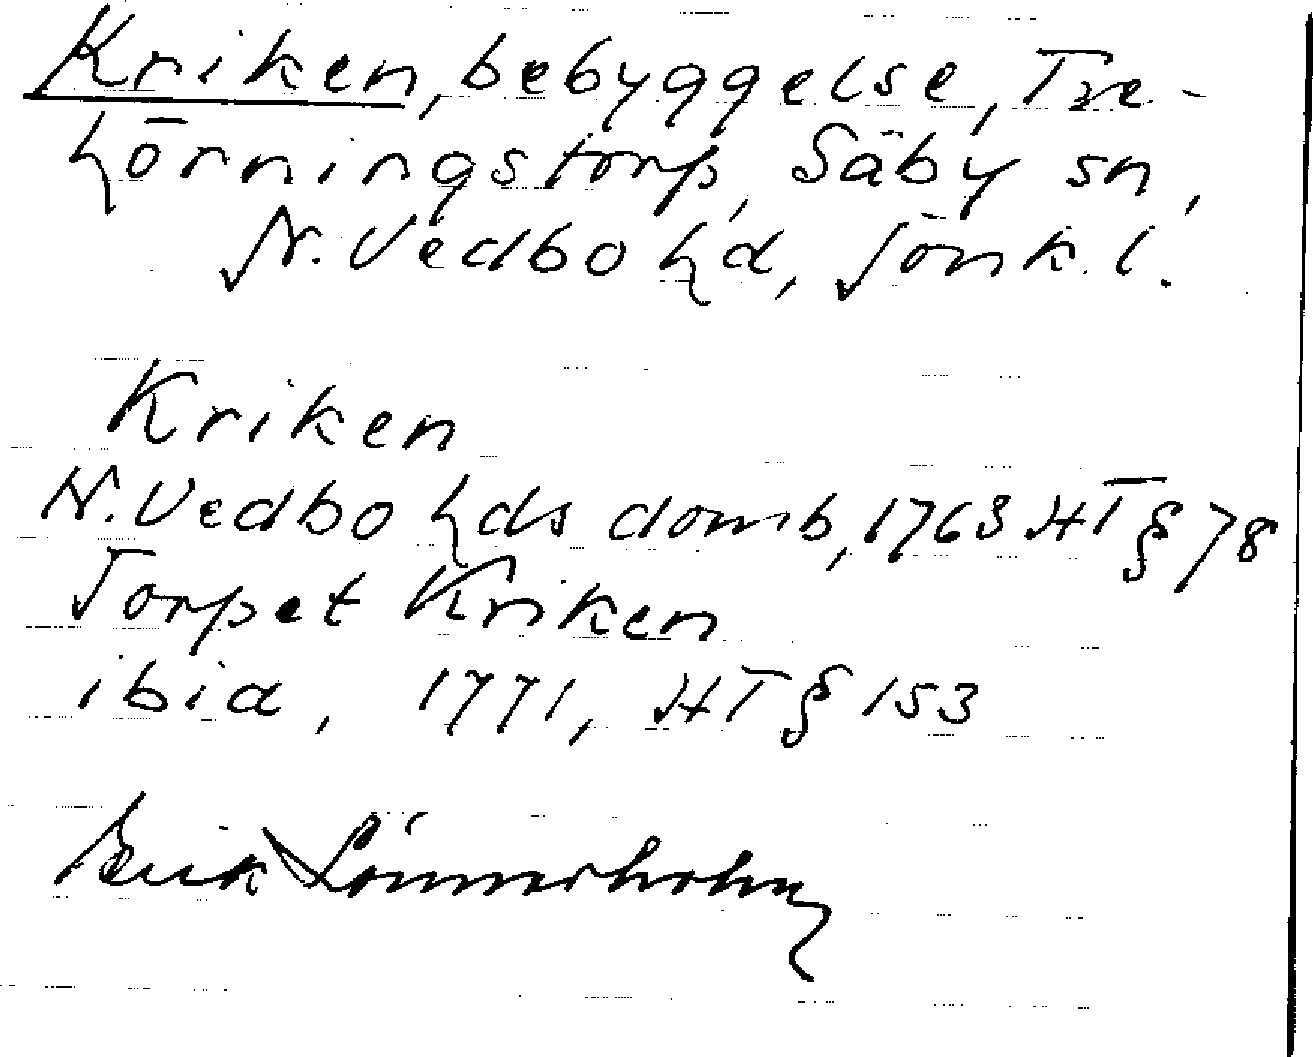 Kriken, bebyggelse, Tre-
hörningstorp, Säby sn,
N. Vedbo hd, Jönk. l.
Kriken
N. Vedbo hds domb, 1763 HT § 78
Torpet Kriken
ibid, 1771, HT § 153
Erik Lönnerholm